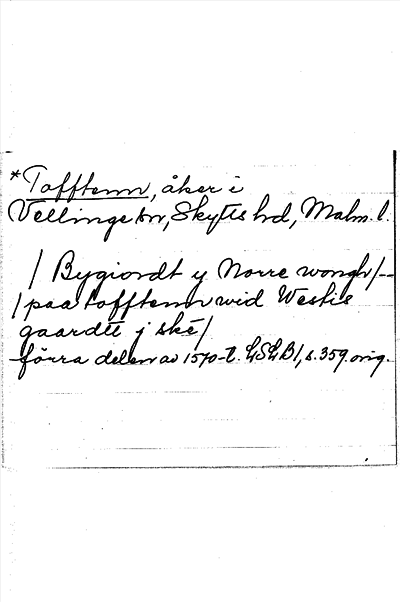 *Tofftenn, åker i
Vellinge sn, Skytts hd, Malm. l.
/ Bygiordt y Norre wongh/--
/ paa tofftenn wid Westis
gaardtt j ské/
förra delen av 1570-t. LSLB1, s. 359. orig.